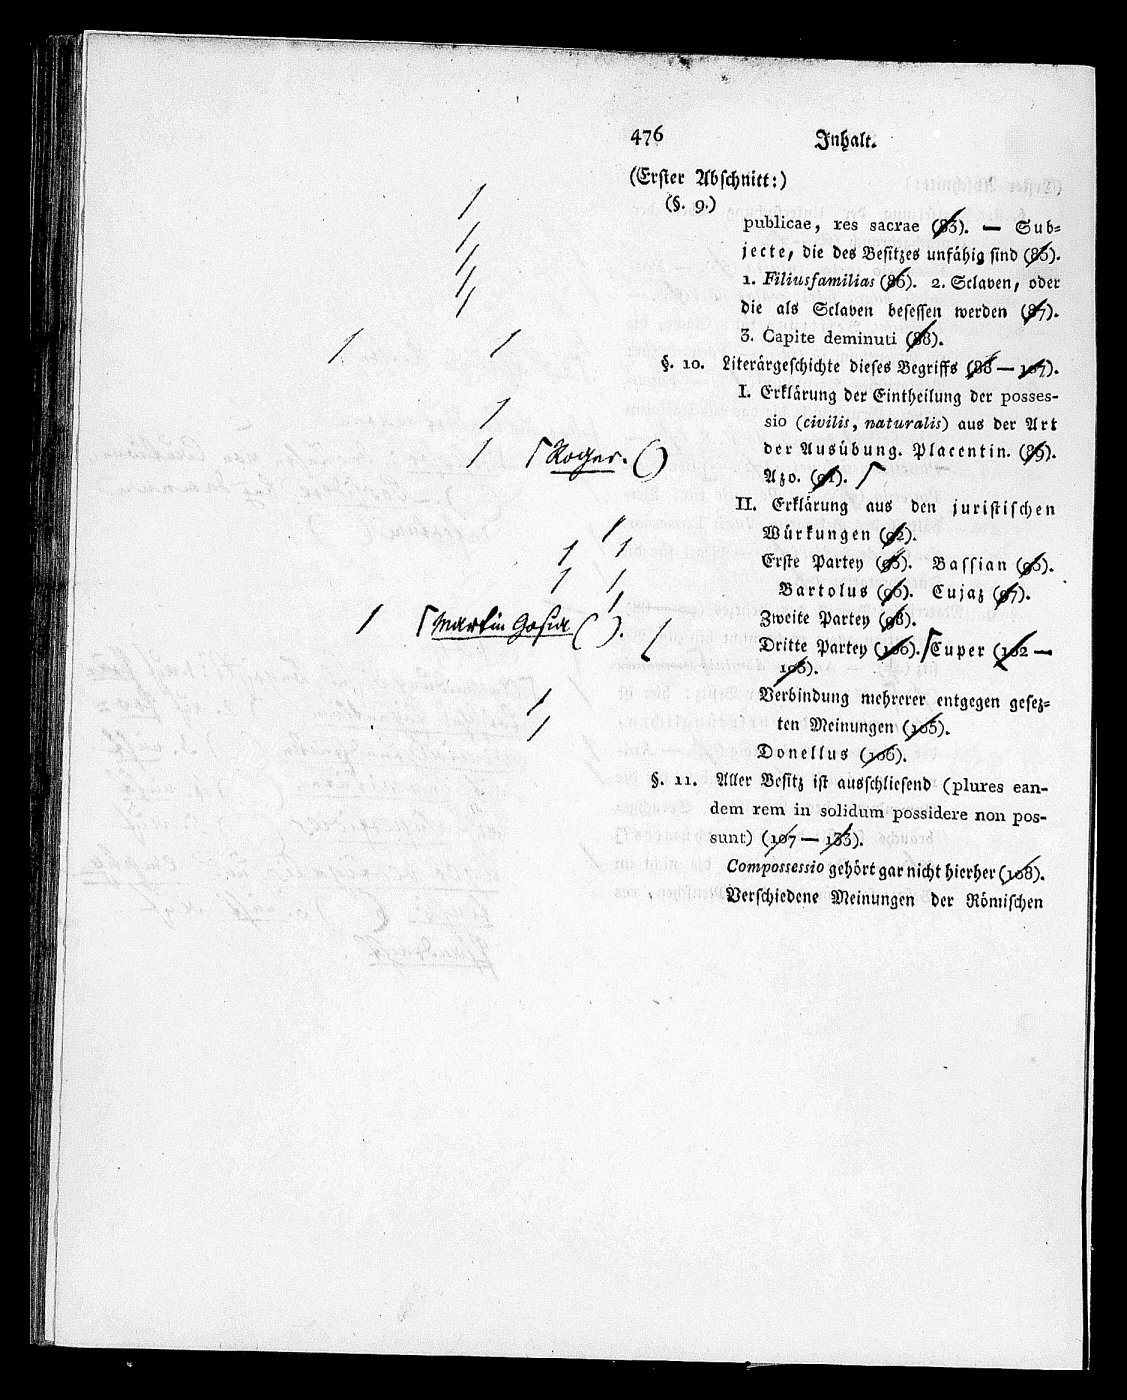 476 Inhalt.
(Erster Abschnitt:)
(§. 9.)
publicae, res sacrae (83). — Sub-
jecte, die des Besitzes unfähig sind (85).
1. Filiusfamilias (86). 2. Sclaven, oder
die als Sclaven besessen werden (87).
3. Capite deminuti (88).
§. 10. Literärgeschichte dieses Begriffs (88 — 107).
I. Erklärung der Eintheilung der posses-
sio (civilis, naturalis) aus der Art
der Ausübung. Placentin. (89).
Roger. ()
Azo. (91).
II. Erklärung aus den juristischen
Würkungen (92).
Erste Partey (95). Bassian (96).
Bartolus (96). Cujaz (97).
Zweite Partey (98).
Martin Gosia ( ).
Dritte Partey (100). Cuper (102 —
105).
Verbindung mehrerer entgegen gesez-
ten Meinungen (105).
Donellus (106).
§. 11. Aller Besitz ist ausschliesend (plures ean-
dem rem in solidum possidere non pos-
sunt) (107 — 133).
Compossessio gehört gar nicht hierher (108).
Verschiedene Meinungen der Römischen